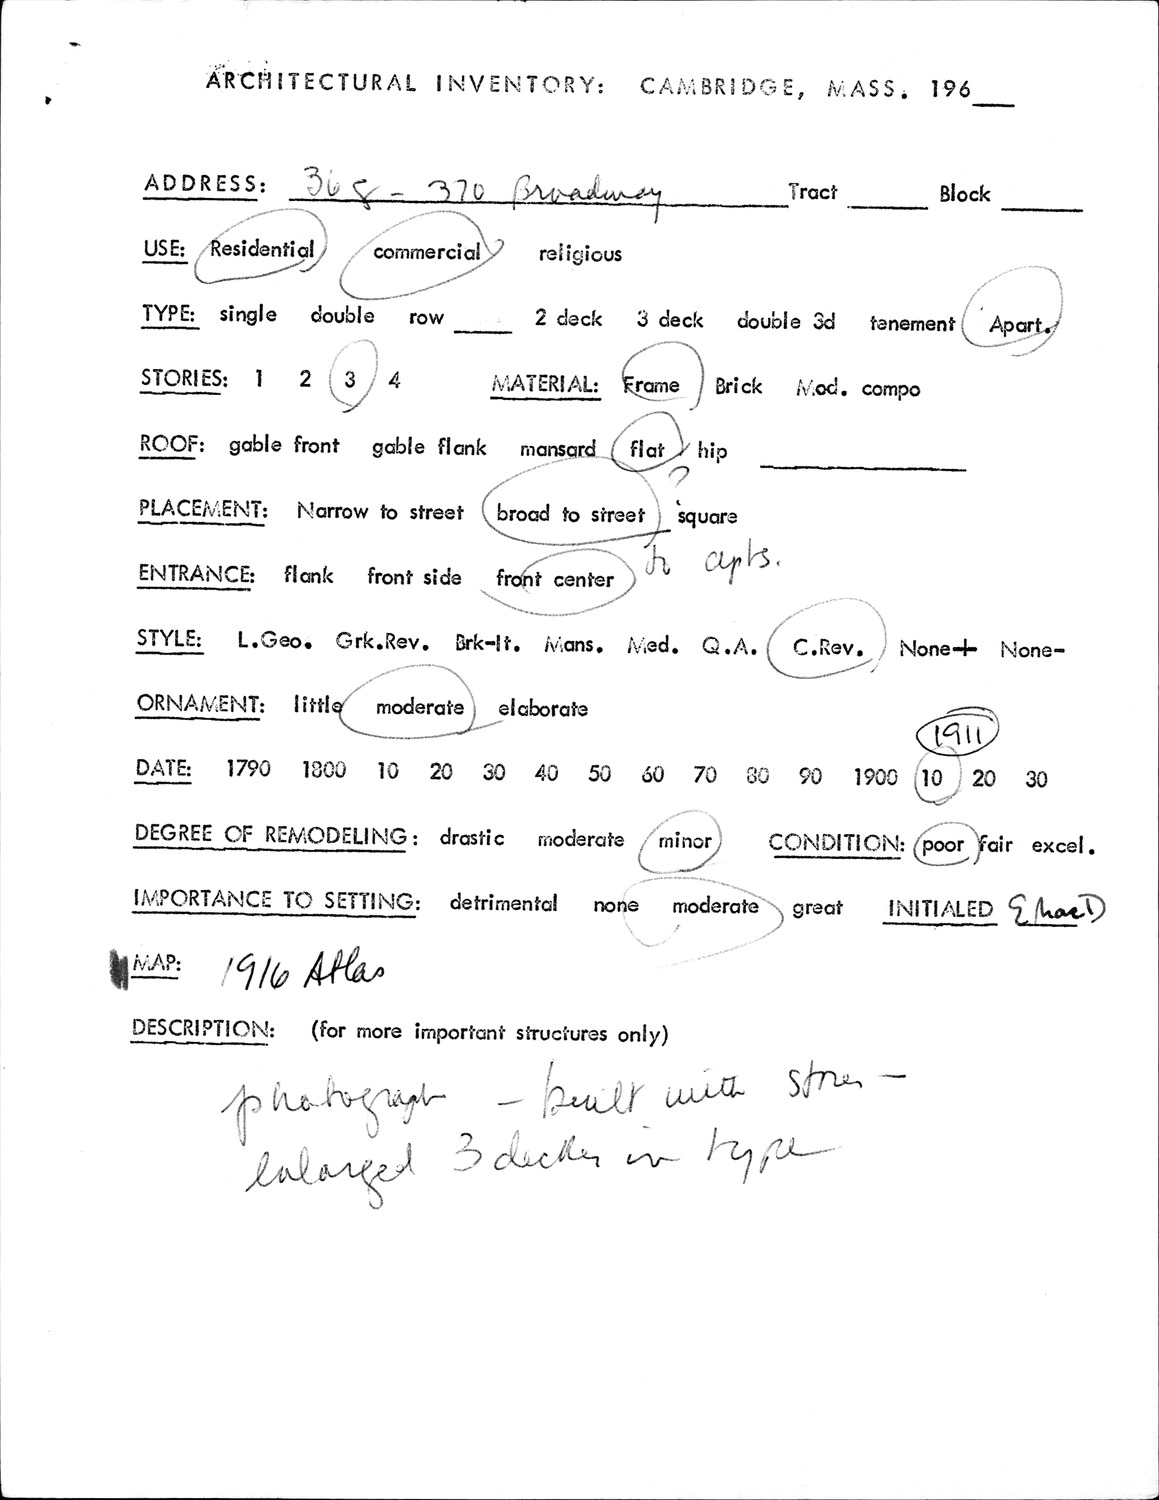 ARCHITECTURAL INVENTORY: CAMBRIDGE, MASS. 196__
ADDRESS: 368 - 370 Broadway Tract ____ Block ____
USE: Residential commercial religious
TYPE: single double row ____ 2 deck 3 deck double 3d tenement Apart.
STORIES: 1 2 3 4 MATERIAL: Frame Brick Mod. compo
ROOF: gable front gable flank mansard flat hip ____
?
PLACEMENT: Narrow to street broad to street square
to apts.
ENTRANCE: flank front side front center
STYLE: L.Geo. Grk.Rev. Brk-It. Mans. Med. Q.A. C.Rev. None+ None-
ORNAMENT: little moderate elaborate
1911
DATE: 1790 1800 10 20 30 40 50 60 70 80 90 1900 10 20 30
DEGREE OF REMODELING: drastic moderate minor CONDITION: poor fair excel.
IMPORTANCE TO SETTING: detrimental none moderate great INITIALED
MAP: 1916 Atlas
DESCRIPTION: (for more important structures only)
photograph - built with stores -
enlarged 3 decker in type